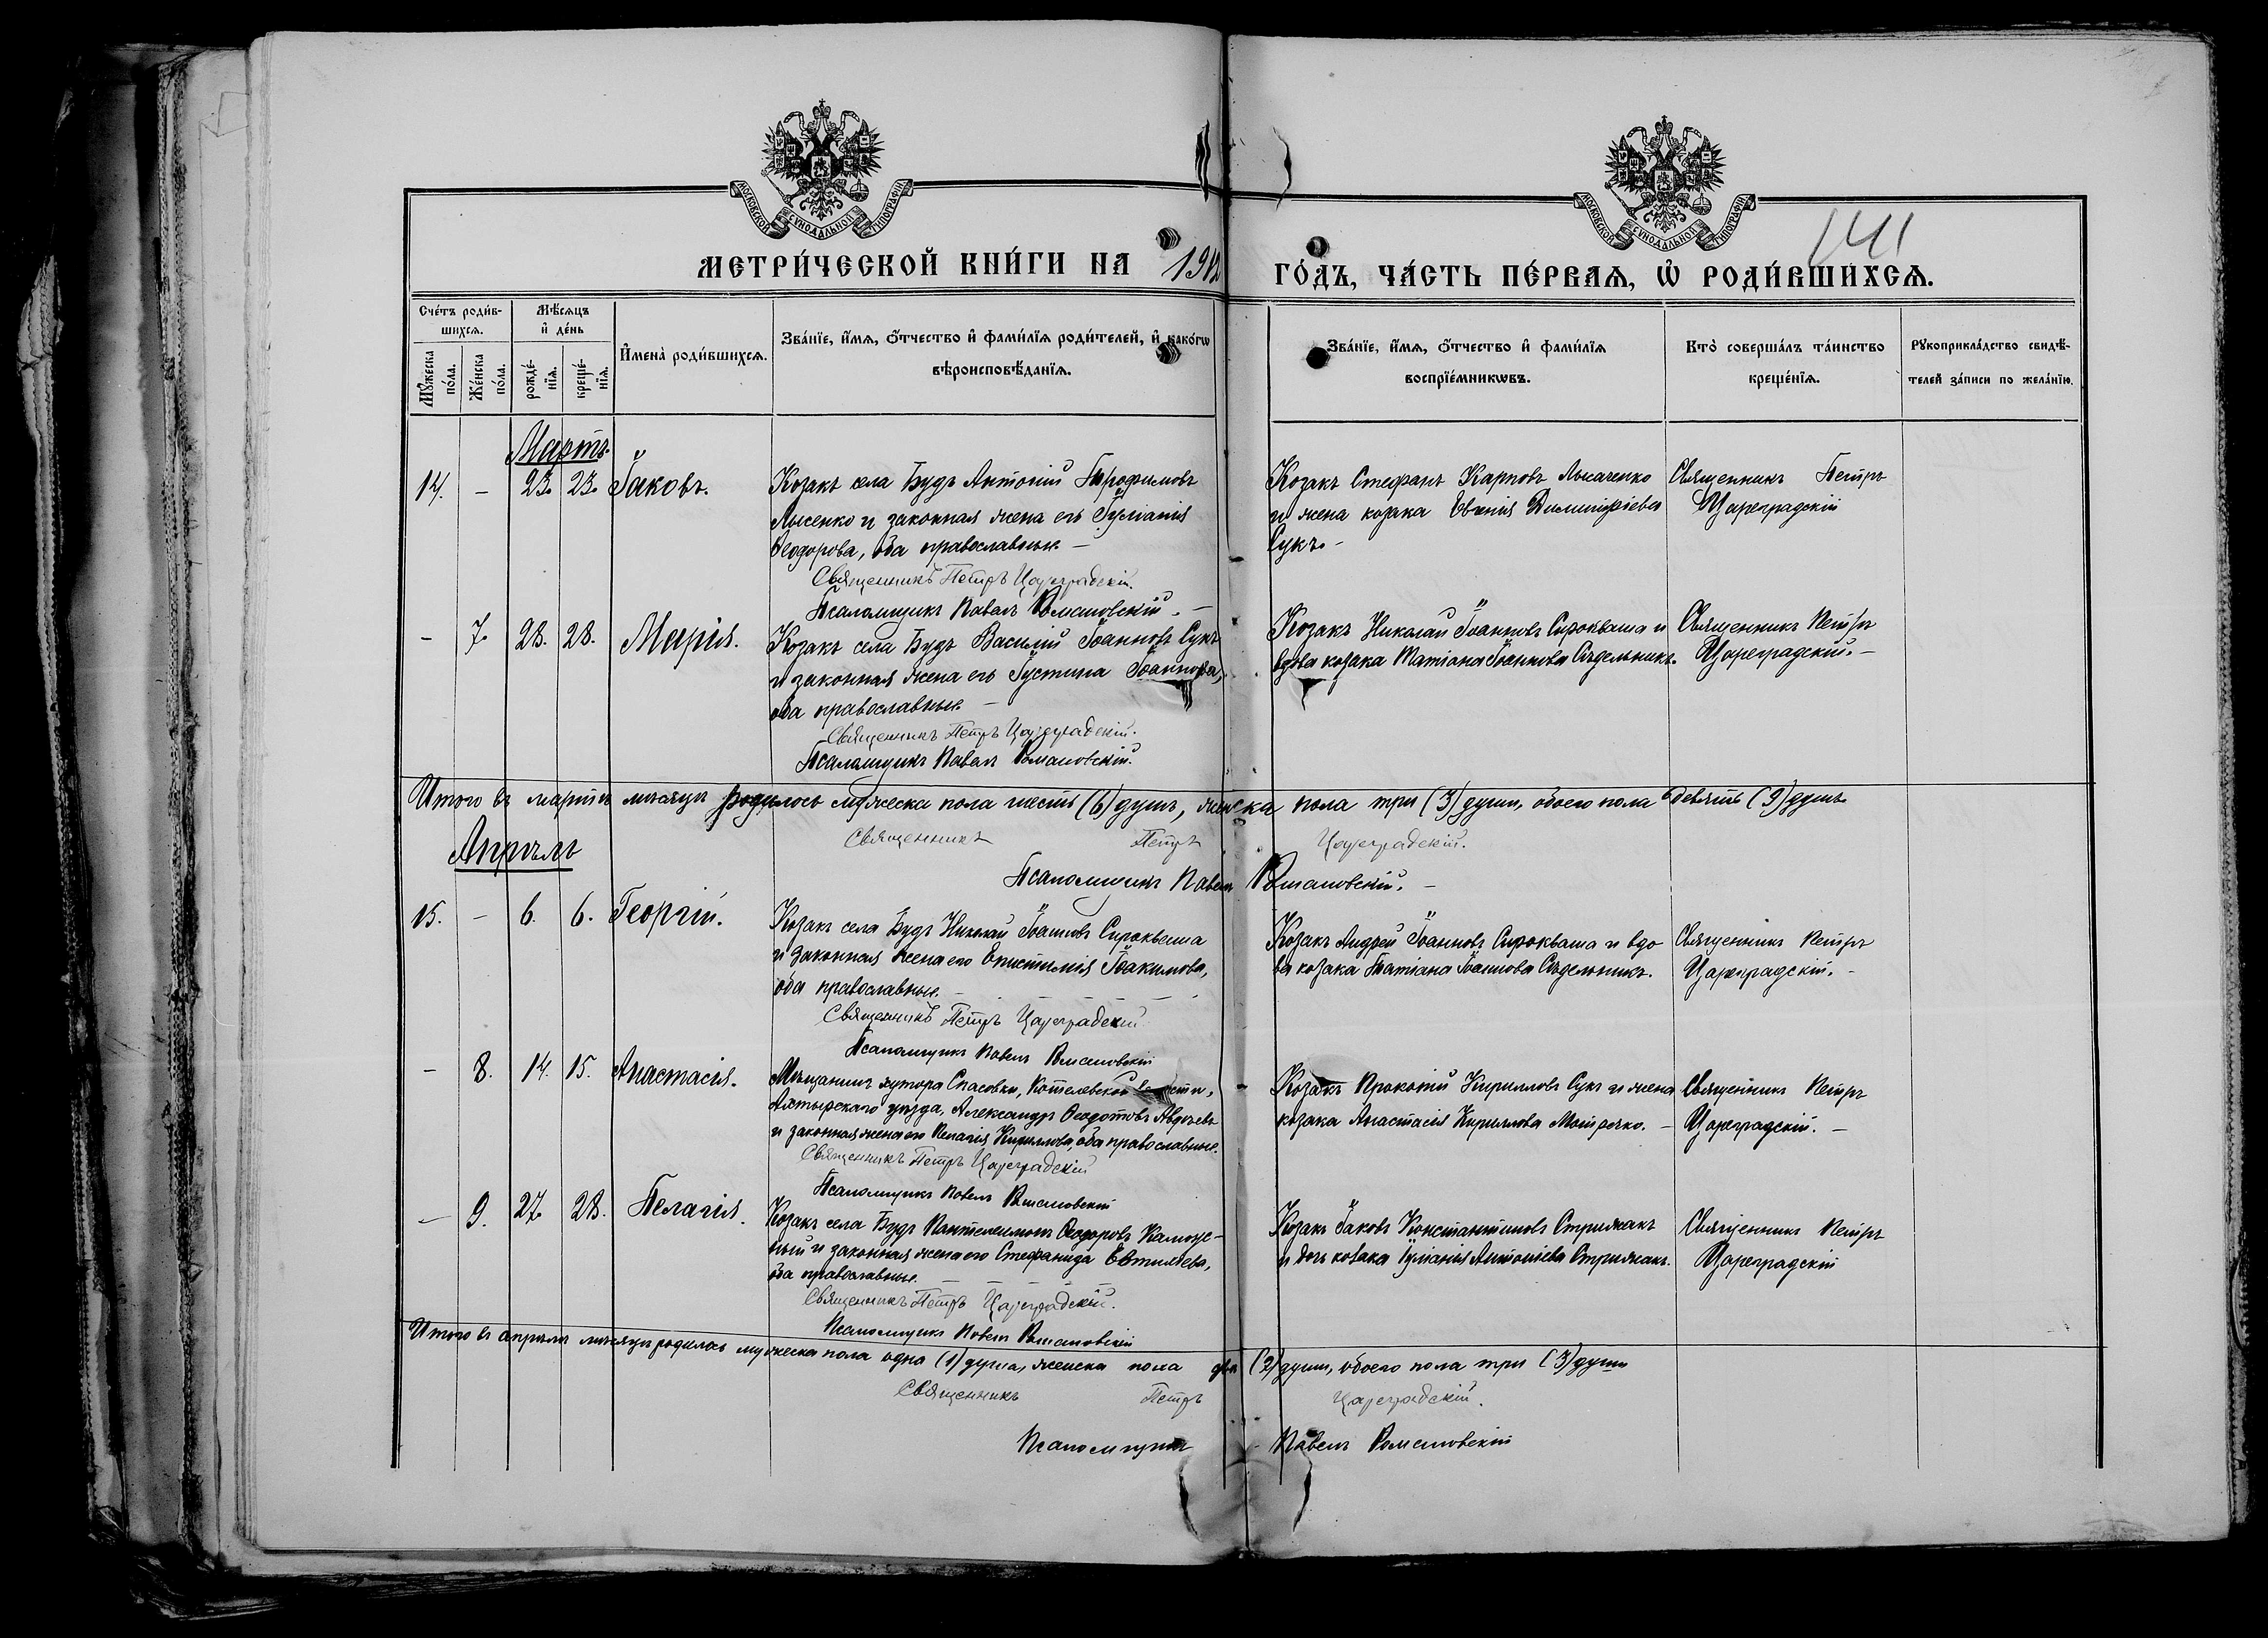 МОСКОВСКОЙ СѴНОДАЛЬНОЙ ТИПОГРАФІИ
МОСКОВСКОЙ СѴНОДАЛЬНОЙ ТИПОГРАФІИ
141
МЕТРИ́ЧЕСКОЙ КНИ́ГИ НА 1912 ГО́ДЪ, ЧА́СТЬ ПЕ́РВАѦ, Ѡ҆ РОДИ́ВШИХСѦ.
Сче́тъ роди́в-
шихсѧ.
Мꙋжеска по́ла.
Же́нска по́ла.
Мѣ́сѧцъ
и҆ де́нь
рожде́-
нїѧ.
креще́-
нїѧ.
И҆мена̀ роди́вшихсѧ.
Зва́нїе, и҆́мѧ, ѻ҆́тчество и҆ фами́лїѧ роди́телей, и҆ како́гѡ
вѣроисповѣ́данїѧ.
Зва́нїе, и҆́мѧ, ѻ҆́тчество и҆ фами́лїѧ
воспрїе́мникѡвъ.
Кто̀ соверша́лъ та́инство
креще́нїѧ.
Рꙋкоприкла́дство свидѣ́-
телей за́писи по жела́нїю.
Мартъ.
14. - 23. 23. Іаковъ.
Козакъ села Будъ Антоній Трофимовъ
Лысенко и законная жена его Іуліанія
Ѳеодорова, оба православные
Священникъ Петръ Цареградскій.
Псаломщикъ Павелъ Романовскій.
Козакъ Стефанъ Карповъ Лысаченко
и жена козака Евгенія Димитріева
Сукъ.
Священникъ Петръ
Цареградскій
- 7. 28. 28. Марія.
Козакъ села Будъ Василій Іоанновъ Сукъ
и законная жена его Іустина Іоаннова,
оба православные.
Священникъ Петръ Цареградскій.
Псаломщикъ Павелъ Романовскій.
Козакъ Николай Іоанновъ Сирокваша и
вдова козака Татіана Іоаннова Сѣдельникъ.
Священникъ Петръ
Цареградскій.
Итого въ мартѣ мѣсяцѣ родилось мужеска пола шесть (6) душъ, женска пола три (3) души, обоего пола девять (9) душъ.
Священникъ Петръ Цареградскій.
Псаломщикъ Павелъ Романовскій.
Апрѣль
15. - 6. 6. Георгій.
Козакъ села Будъ Николай Іоанновъ Сирокваша
и законная жена его Епистимія Іоакимова,
оба православные.
Священникъ Петръ Цареградскій
Псаломщикъ Павелъ Романовскій
Козакъ Андрей Іоанновъ Сирокваша и вдо
ва козака Татіана Іоаннова Сѣдельникъ.
Священникъ Петръ
Цареградскій.
- 8. 14. 15. Анастасія.
Мѣщанинъ хутора Спасовки, Котелевской
Ахтырскаго уѣзда, Александръ Ѳеодотовъ Авдѣевъ
и законная жена его Пелагія Кириллова, оба православные.
Священникъ Петръ Цареградскій
Псаломщикъ Павелъ Романовскій
Козакъ Прокопій Кирилловъ Сукъ и жена
козака Анастасія Кириллова Мотречко.
Священникъ Петръ
Цареградскій.
- 9. 27. 28. Пелагія.
Козакъ села Будъ Пантелеимонъ Ѳеодоровъ
и законная жена его Стефанида Евтихіева,
оба православные.
Священникъ Петръ Цареградскій.
Псаломщикъ Павелъ Романовскій
Козакъ Іаковъ Константиновъ Стрижакъ
и дочь козака Іуліанія Антоніева Стрижакъ.
Священникъ Петръ
Цареградскій
Итого въ апрѣлѣ мѣсяцѣ родилось мужеска пола одна (1) душа, женска пола двѣ (2) души, обоего пола три (3) души
Священникъ Петръ Цареградскій.
Псаломщикъ Павелъ Романовскій